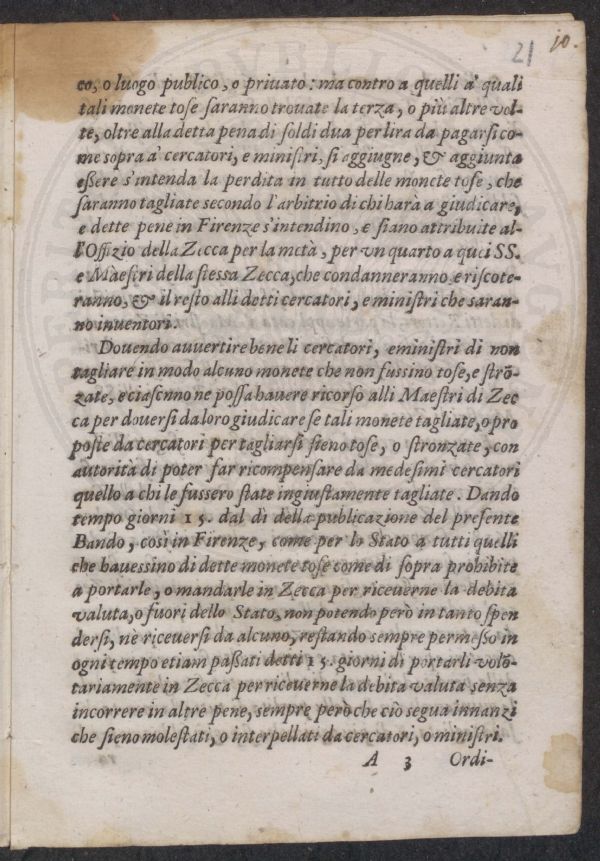 21 10.
co, o luogo publico, o priuato: ma contro a quelli a' quali
tali monete tose saranno trouate la terza, o più altre vol-
te, oltre alla detta pena di soldi dua per lira da pagarsi co-
me sopra a' cercatori, e ministri, si aggiugne, & aggiunta
essere s'intenda la perdita in tutto delle monete tose, che
saranno tagliate secondo l'arbitrio di chi harà a giudicare,
e dette pene in Firenze s'intendino, e siano attribuite al-
l'Offizio della Zecca per la metà, per vn quarto a quei SS.
e Maestri della stessa Zecca, che condanneranno e riscote-
ranno, & il resto alli detti cercatori, e ministri che saran-
no inuentori.
Douendo auuertire bene li cercatori, e ministri di non
tagliare in modo alcuno monete che non fussino tose, e strõ-
zate, e ciascnno ne possa hauere ricorso alli Maestri di Zec
ca per douersi da loro giudicare se tali monete tagliate, o pro
poste da cercatori per tagliarsi sieno tose, o stronzate, con
autorità di poter far ricompensare da medesimi cercatori
quello a chi le fussero state ingiustamente tagliate. Dando
tempo giorni 15. dal dì della publicazione del presente
Bando, così in Firenze, come per lo Stato a tutti quelli
che hauessino di dette monete tose come di sopra prohibite
a portarle, o mandarle in Zecca per riceuerne la debita
valuta, o fuori dello Stato, non potendo però in tanto spen
dersi, ne riceuersi da alcuno, restando sempre permesso in
ogni tempo etiam passati detti 15. giorni di portarli volõ-
tariamente in Zecca per riceuerne la debita valuta senza
incorrere in altre pene, sempre però che ciò segua innanzi
che sieno molestati, o interpellati da cercatori, o ministri.
A 3 Ordi-